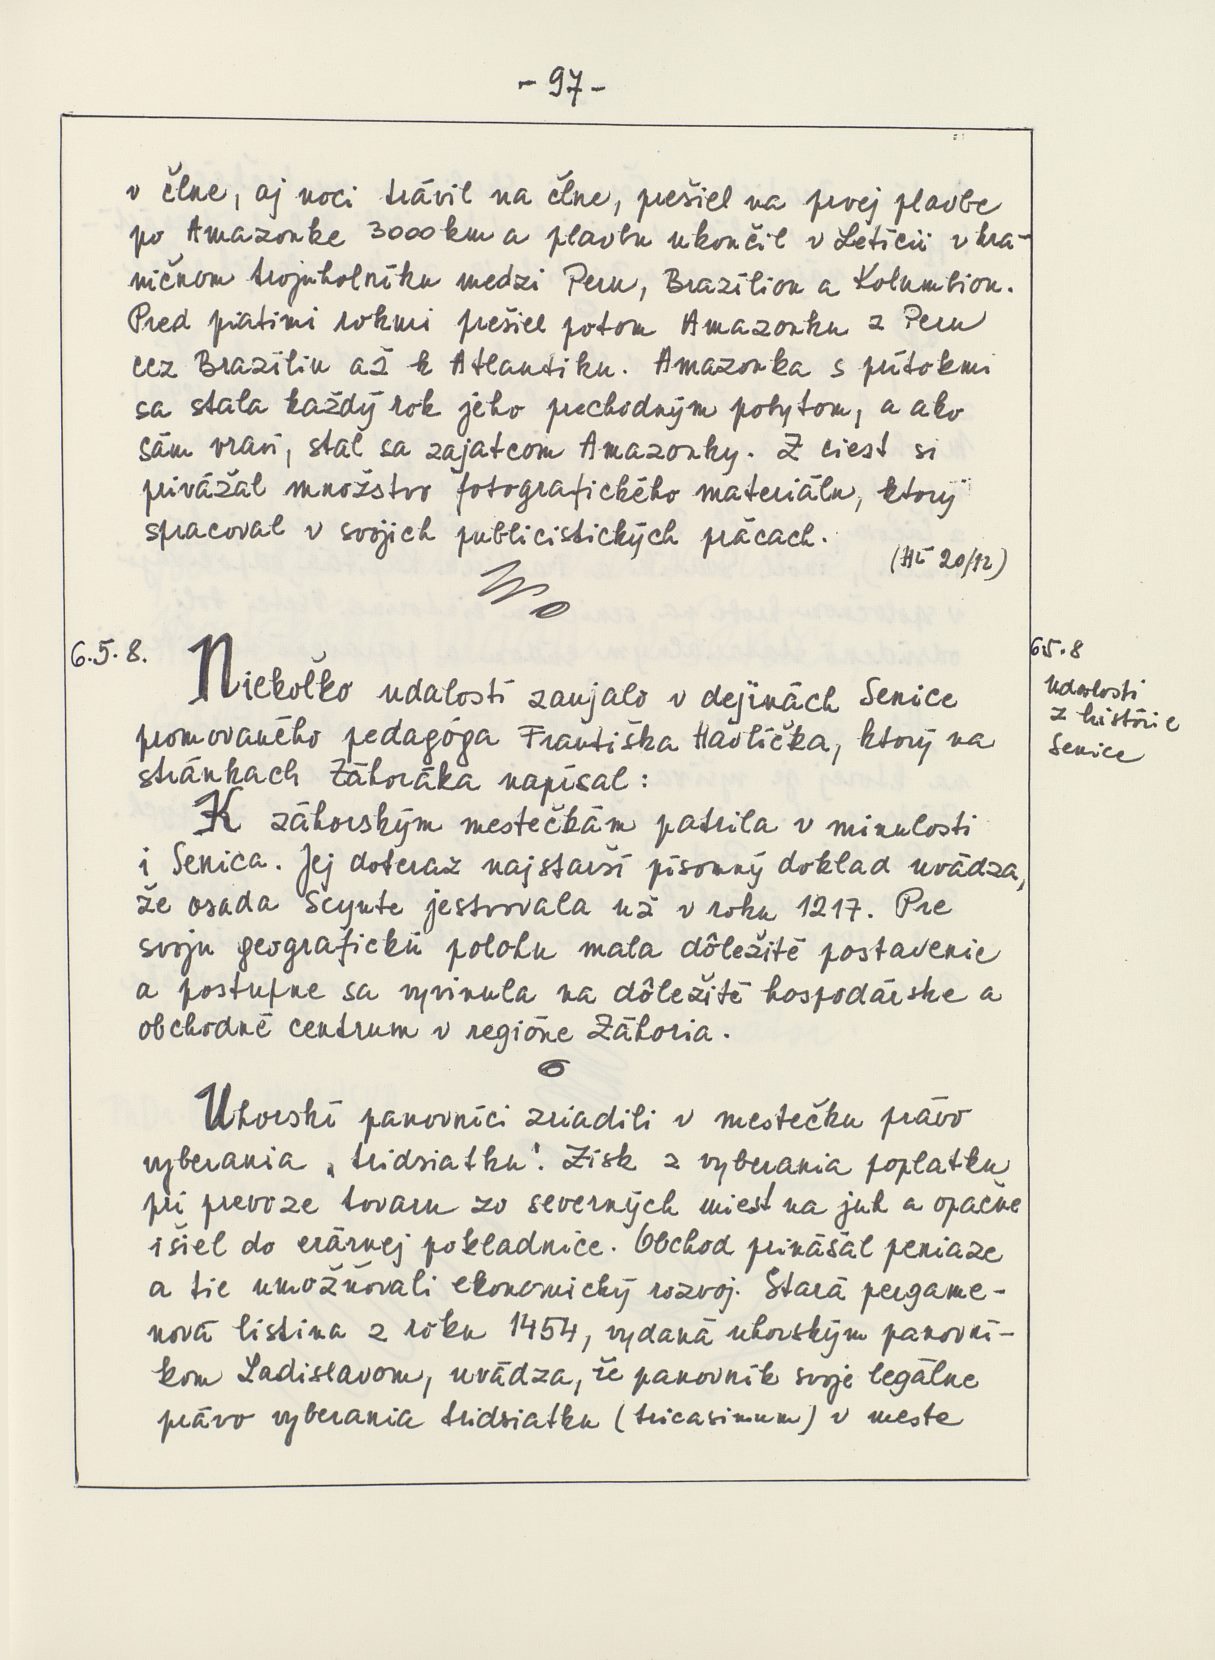 - 97 -
v člne, aj noci trávil na člne, prešiel na prvej plavbe
po Amazonke 3000 km a plavbu ukončil v Letícii v hra-
ničnom trojuholníku medzi Peru, Brazíliou a Kolumbiou.
Pred piatimi rokmi prešiel potom Amazonku z Peru
cez Brazíliu až k Atlantiku. Amazonka s prítokmi
sa stala každý rok jeho prechodným pobytom, a ako
sám vraví, stal sa zajatcom Amazonky. Z ciest si
privážal množstvo fotografického materiálu, ktorý
spracoval v svojich publicistických prácach.
6.5.8.
Niekoľko udalostí zaujalo v dejinách Senice
promovaného pedagóga Františka Havlíčka, ktorý na
stránkach Záhoráka napísal:
6.5.8
Udalosti
z histórie
Senice
K záhorským mestečkám patrila v minulosti
i Senica. Jej doteraz najstarší písomný doklad uvádza,
že osada Scynte jestvovala už v roku 1217. Pre
svoju geografickú polohu mala dôležité postavenie
a postupne sa vyvinula na dôležité hospodárske a
obchodné centrum v regióne Záhoria.
Uhorskí panovníci zriadili v mestečku právo
vyberania „tridsiatku". Zisk z vyberania poplatku
pri prevoze tovaru zo severných miest na juh a opačne
išiel do erárnej pokladnice. Obchod prinášal peniaze
a tie umožňovali ekonomický rozvoj. Stará pergame-
nová listina z roku 1454, vydaná uhorským panovní-
kom Ladislavom, uvádza, že panovník svoje legálne
právo vyberania tridsiatku (tricasimum) v meste